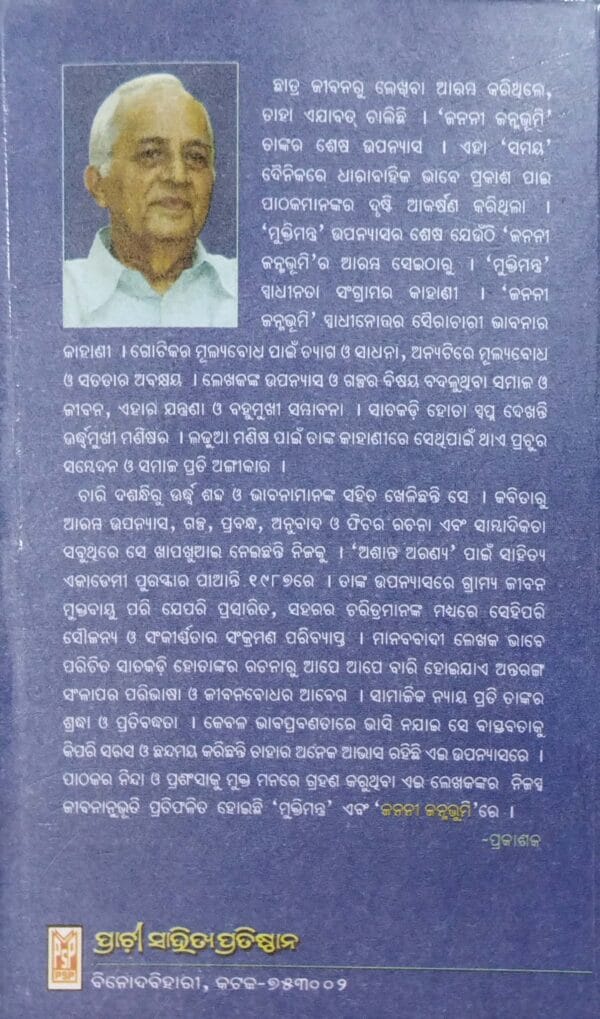 ଛାତ୍ର ଜୀବନରୁ ଲେଖିବା ଆରମ୍ଭ କରିଥିଲେ,
ତାହା ଏଯାବତ୍ ଚାଲିଛି । ‘ଜନନୀ ଜନ୍ମଭୂମି’
ତାଙ୍କର ଶେଷ ଉପନ୍ୟାସ । ଏହା ‘ସମୟ’
ଦୈନିକରେ ଧାରାବାହିକ ଭାବେ ପ୍ରକାଶ ପାଇ
ପାଠକମାନଙ୍କର ଦୃଷ୍ଟି ଆକର୍ଷଣ କରିଥିଲା ।
‘ମୁକ୍ତିମନ୍ତ୍ର’ ଉପନ୍ୟାସର ଶେଷ ଯେଉଁଠି ‘ଜନନୀ
ଜନ୍ମଭୂମି’ର ଆରମ୍ଭ ସେଇଠାରୁ । ‘ମୁକ୍ତିମନ୍ତ୍ର’
ସ୍ୱାଧୀନତା ସଂଗ୍ରାମର କାହାଣୀ । ‘ଜନନୀ
ଜନ୍ମଭୂମି’ ସ୍ୱାଧୀନୋତ୍ତର ସ୍ୱୈରାଚାରୀ ଭାବନାର
କାହାଣୀ । ଗୋଟିକର ମୂଲ୍ୟବୋଧ ପାଇଁ ତ୍ୟାଗ ଓ ସାଧନା, ଅନ୍ୟଟିରେ ମୂଲ୍ୟବୋଧ
ଓ ସତତାର ଅବକ୍ଷୟ । ଲେଖକଙ୍କ ଉପନ୍ୟାସ ଓ ଗଳ୍ପର ବିଷୟ ବଦଳୁଥିବା ସମାଜ ଓ
ଜୀବନ, ଏହାର ଯନ୍ତ୍ରଣା ଓ ବହୁମୁଖୀ ସମ୍ଭାବନା । ସାତକଡ଼ି ହୋତା ସ୍ୱପ୍ନ ଦେଖନ୍ତି
ଊର୍ଦ୍ଧ୍ୱମୁଖୀ ମଣିଷର । ଲଢୁଆ ମଣିଷ ପାଇଁ ତାଙ୍କ କାହାଣୀରେ ସେଥିପାଇଁ ଥାଏ ପ୍ରଚୁର
ସମ୍ବେଦନ ଓ ସମାଜ ପ୍ରତି ଅଙ୍ଗୀକାର ।
ଚାରି ଦଶନ୍ଧିରୁ ଊର୍ଦ୍ଧ୍ୱ ଶବ୍ଦ ଓ ଭାବନାମାନଙ୍କ ସହିତ ଖେଳିଛନ୍ତି ସେ । କବିତାରୁ
ଆରମ୍ଭ ଉପନ୍ୟାସ, ଗଳ୍ପ, ପ୍ରବନ୍ଧ, ଅନୁବାଦ ଓ ଫିଚର ରଚନା ଏବଂ ସାମ୍ବାଦିକତା
ସବୁଥିରେ ସେ ଖାପଖୁଆଇ ନେଇଛନ୍ତି ନିଜକୁ । ‘ଅଶାନ୍ତ ଅରଣ୍ୟ’ ପାଇଁ ସାହିତ୍ୟ
ଏକାଡେମୀ ପୁରସ୍କାର ପାଆନ୍ତି ୧୯୮୭ରେ । ତାଙ୍କ ଉପନ୍ୟାସରେ ଗ୍ରାମ୍ୟ ଜୀବନ
ମୁକ୍ତବାୟୁ ପରି ଯେପରି ପ୍ରସାରିତ, ସହରର ଚରିତ୍ରମାନଙ୍କ ମଧ୍ୟରେ ସେହିପରି
ସୌଜନ୍ୟ ଓ ସଂକୀର୍ଣ୍ଣତାର ସଂକ୍ରମଣ ପରିବ୍ୟାପ୍ତ । ମାନବବାଦୀ ଲେଖକ ଭାବେ
ପରିଚିତ ସାତକଡ଼ି ହୋତାଙ୍କର ରଚନାରୁ ଆପେ ଆପେ ବାରି ହୋଇଯାଏ ଅନ୍ତରଙ୍ଗ
ସଂଳାପର ପରିଭାଷା ଓ ଜୀବନବୋଧର ଆବେଗ । ସାମାଜିକ ନ୍ୟାୟ ପ୍ରତି ତାଙ୍କର
ଶ୍ରଦ୍ଧା ଓ ପ୍ରତିବଦ୍ଧତା । କେବଳ ଭାବପ୍ରବଣତାରେ ଭାସି ନଯାଇ ସେ ବାସ୍ତବତାକୁ
କିପରି ସରସ ଓ ଛନ୍ଦମୟ କରିଛନ୍ତି ତାହାର ଅନେକ ଆଭାସ ରହିଛି ଏଇ ଉପନ୍ୟାସରେ ।
ପାଠକର ନିନ୍ଦା ଓ ପ୍ରଶଂସାକୁ ମୁକ୍ତ ମନରେ ଗ୍ରହଣ କରୁଥିବା ଏଇ ଲେଖକଙ୍କର ନିଜସ୍ୱ
ଜୀବନାନୁଭୂତି ପ୍ରତିଫଳିତ ହୋଇଛି ‘ମୁକ୍ତିମନ୍ତ୍ର’ ଏବଂ ‘ଜନନୀ ଜନ୍ମଭୂମି’ରେ ।
-ପ୍ରକାଶକ
PSP
ପ୍ରାଚୀ ସାହିତ୍ୟ ପ୍ରତିଷ୍ଠାନ
ବିନୋଦବିହାରୀ, କଟକ-୭୫୩୦୦୨